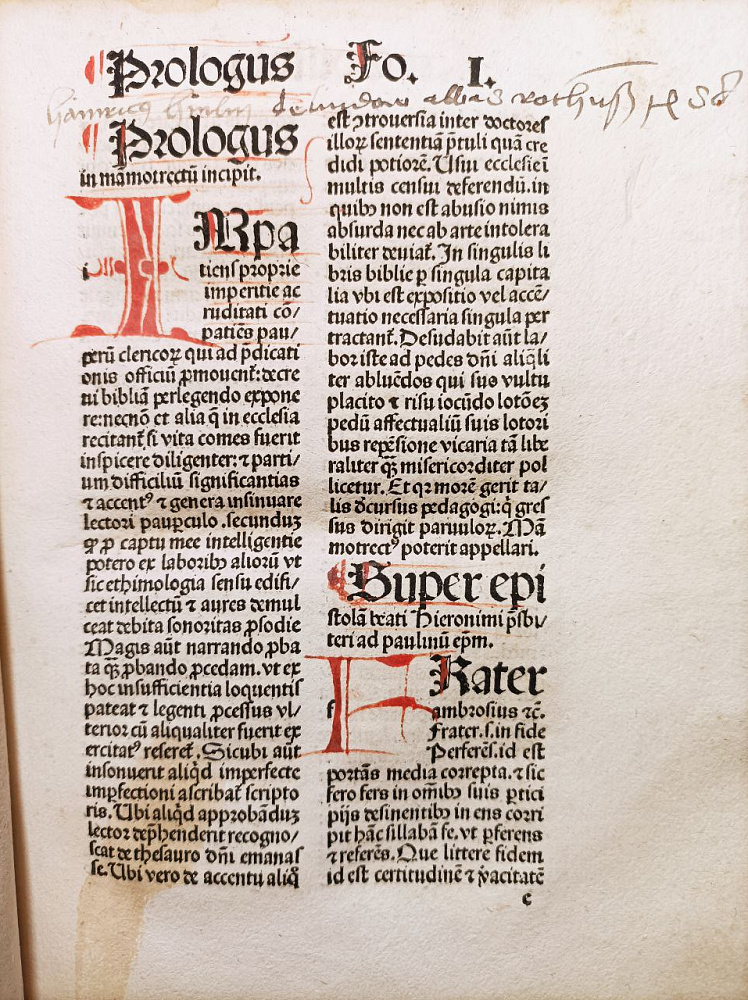 Prologus Fo. I.
Prologus
in māmotrectū incipit.
IMpa
tiens proprie
imperitie ac
ruditati cō/
patiēs pau/
perū clericoꝝ qui ad p̄dicati
onis officiū ꝓmouent᷑: decre
ui bibliā perlegendo expone
re: necnō et alia q̄ in ecclesia
recitant᷑ si vita comes fuerit
inspicere diligenter: ⁊ parti/
um difficiliū significantias
⁊ accentꝰ ⁊ genera insinuare
lectori pauꝑculo. secunduꝫ
ꝙ ꝓ captu mee intelligentie
potero ex laboribꝰ alioꝝ vt
sic ethimologia sensu edifi/
cet intellectū ⁊ aures demul
ceat debita sonoritas ꝓsodie
Magis aūt narrando ꝓba
ta qꝫ ꝓbando ꝓcedam. vt ex
hoc insufficientia loquentis
pateat ⁊ legenti ꝓcessus vl/
terior cū aliqualiter fuerit ex
ercitatꝰ referet᷑. Sicubi aūt
insonuerit aliqd̄ imperfecte
imꝑfectioni ascribat᷑ scripto
ris. Ubi aliqd̄ approbāduꝫ
lector dep̄henderit recogno/
scat de thesauro dn̄i emanas
se. Ubi vero de accentu aliq̄
est ꝯtrouersia inter doctores
illoꝝ sententiā p̄tuli quā cre
didi potiorē. Usui ecclesie ī
multis censui deferendū. in
quibꝰ non est abusio nimis
absurda nec ab arte intolera
biliter deuiat᷑. In singulis li
bris biblie ꝑ singula capita
lia vbi est expositio vel accē/
tuatio necessaria singula per
tractant᷑. Desudabit aūt la/
bor iste ad pedes dn̄i aliq̄li
ter abluēdos qui suo vultu
placito ⁊ risu iocūdo lotōeꝫ
pedū affectualiū suis lotori
bus repēsione vicaria tā libe
raliter qꝫ misericorditer pol
licetur. Et qꝛ morē gerit ta/
lis dcursus pedagogi: q̇ gres
sus dirigit paruuloꝝ. Mā
motrectꝰ poterit appellari.
Super epi
stolā beati Hieronimi p̄sbi/
teri ad paulinū ep̄m.
FRater
ambrosius ⁊c̄.
Frater. s. in fide
Perferēs. id est
portās media correpta. ⁊ sic
fero fers in om̄ibꝰ suis ꝑtici
pijs desinentibꝰ in ens corri
pit hāc sillabā fe. vt ꝑferens
⁊ referēs. Que littere fidem
id est certitudinē ⁊ v̄acitatē
c